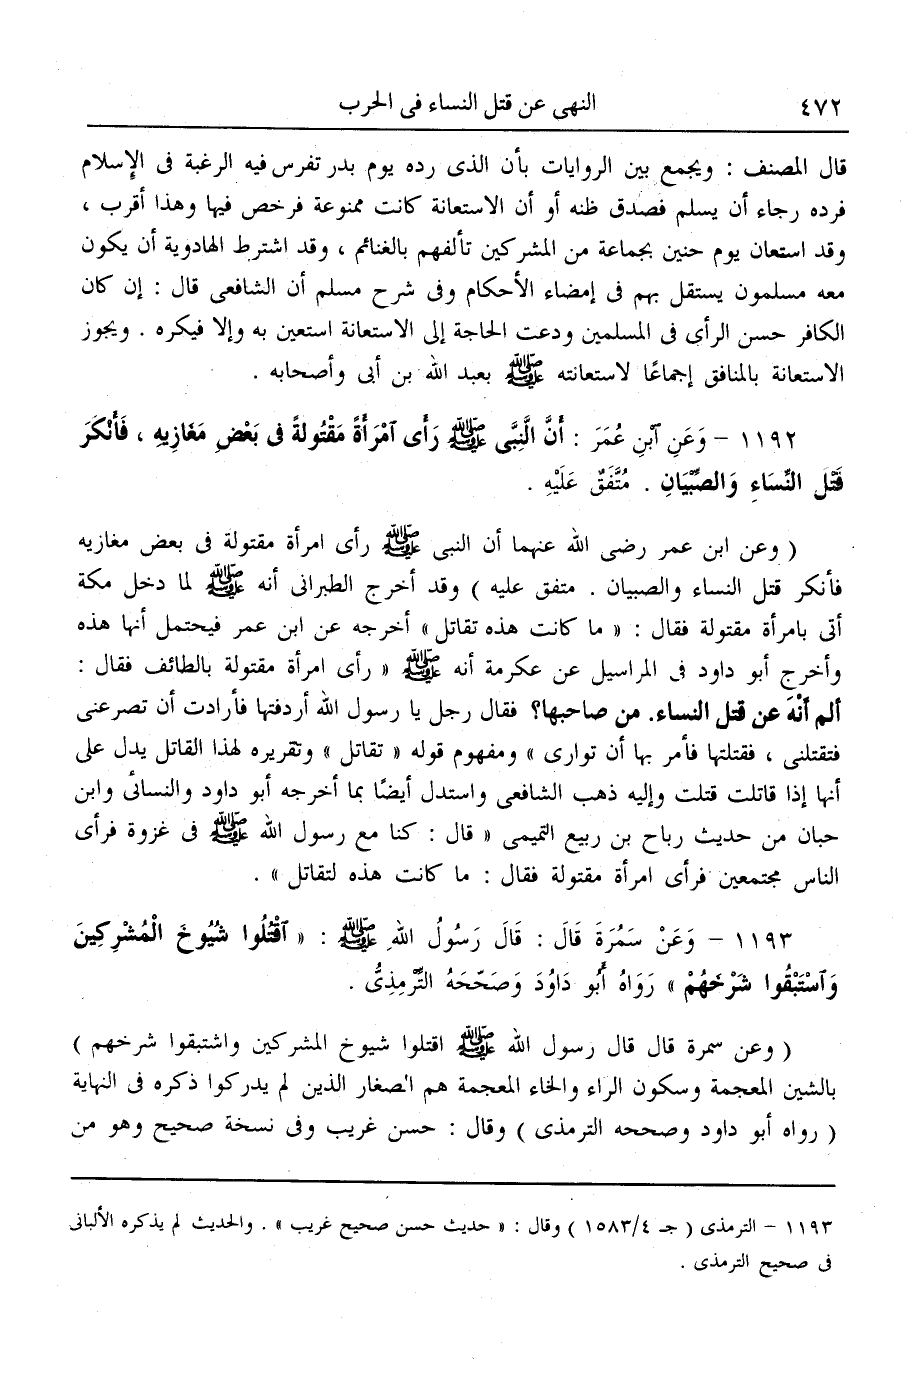 ٤٧٢ النهى عن قتل النساء فى الحرب
قال المصنف : ويجمع بين الروايات بأن الذى رده يوم بدر تفرس فيه الرغبة فى الإسلام
فرده رجاء أن يسلم فصدق ظنه أو أن الاستعانة كانت ممنوعة فرخص فيها وهذا أقرب ،
وقد استعان يوم حنين بجماعة من المشركين تألفهم بالغنائم ، وقد اشترط الهادوية أن يكون
معه مسلمون يستقل بهم فى إمضاء الأحكام وفى شرح مسلم أن الشافعى قال : إن كان
الكافر حسن الرأى فى المسلمين ودعت الحاجة إلى الاستعانة استعين به وإلا فيكره . ويجوز
الاستعانة بالمنافق إجماعًا لاستعانته ﷺ بعبد الله بن أبى وأصحابه .
١١٩٢ – وَعَنِ ٱبْنِ عُمَرَ : أَنَّ الَّنِبَّى ﷺ رَأَى ٱمْرَأَةً مَقْتُولَةً فى بَعْضِ مَغَازِيهِ ، فَأَنْكَرَ
قَتْلَ النِّسَاءِ وَالصِّبْيَانِ . مُتَّفَقٌ عَلَيْهِ .
( وعن ابن عمر رضى الله عنهما أن النبى ﷺ رأى امرأة مقتولة فى بعض مغازيه
فأنكر قتل النساء والصبيان . متفق عليه ) وقد أخرج الطبرانى أنه ﷺ لما دخل مكة
أتى بامرأة مقتولة فقال : « ما كانت هذه تقاتل » أخرجه عن ابن عمر فيحتمل أنها هذه
وأخرج أبو داود فى المراسيل عن عكرمة أنه ﷺ « رأى امرأة مقتولة بالطائف فقال :
ألم أَنْهَ عن قتل النساء. من صاحبها؟ فقال رجل يا رسول الله أردفتها فأرادت أن تصرعنى
فتقتلنى ، فقتلتها فأمر بها أن توارى » ومفهوم قوله « تقاتل » وتقريره لهذا القاتل يدل على
أنها إذا قاتلت قتلت وإليه ذهب الشافعى واستدل أيضًا بما أخرجه أبو داود والنسائى وابن
حبان من حديث رباح بن ربيع التميمى « قال : كنا مع رسول الله ﷺ فى غزوة فرأى
الناس مجتمعين فرأى امرأة مقتولة فقال : ما كانت هذه لتقاتل » .
١١٩٣ – وَعَنْ سَمُرَةَ قَالَ : قَالَ رَسُولُ اللهِ ﷺ : « ٱقْتُلُوا شُيُوخَ الْمُشْرِكِينَ
وَٱسْتَبْقُوا شَرْخَهُمْ » رَوَاهُ أَبُو دَاوُدَ وَصَحَّحَهُ التِّرْمِذِىُّ .
( وعن سمرة قال قال رسول الله ﷺ اقتلوا شيوخ المشركين واشتبقوا شرخهم )
بالشين المعجمة وسكون الراء والخاء المعجمة هم الصغار الذين لم يدركوا ذكره فى النهاية
( رواه أبو داود وصححه الترمذى ) وقال : حسن غريب وفى نسخة صحيح وهو من
١١٩٣ – الترمذى ( جـ ١٥٨٣/٤ ) وقال : « حديث حسن صحيح غريب » . والحديث لم يذكره الألبانى
فى صحيح الترمذى .